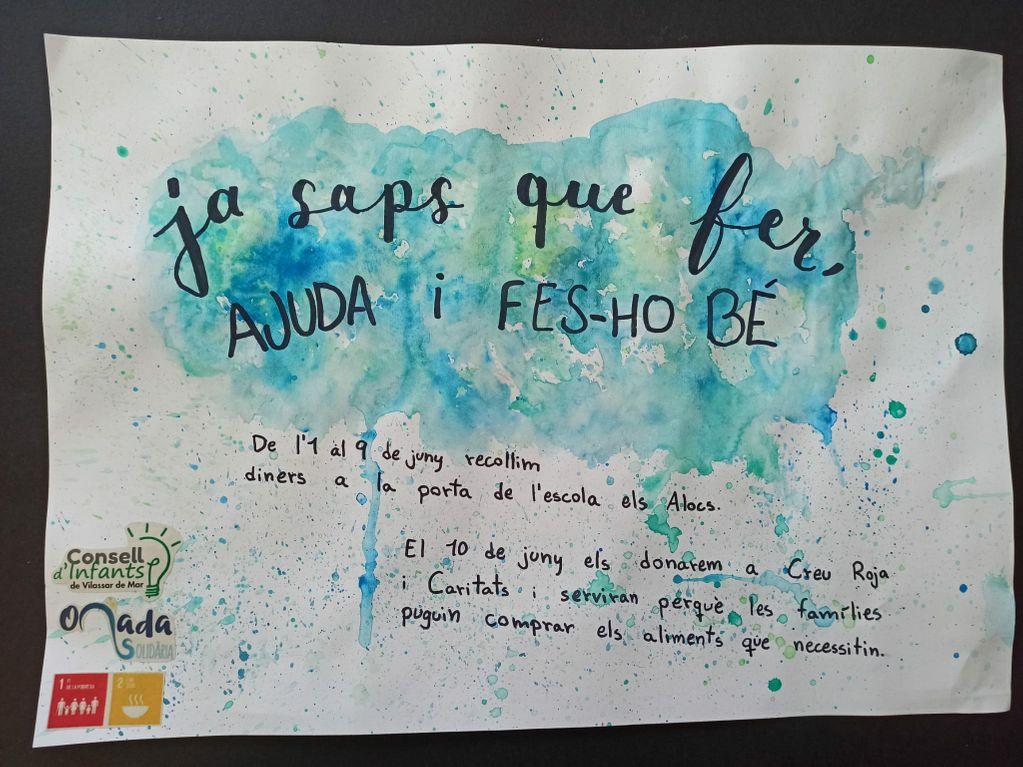 ja saps que fer,
AJUDA i FES-HO BÉ
De l'1 al 9 de juny recollim
diners a la porta de l'escola els Alocs.
El 10 de juny els donarem a Creu Roja
i Caritats i serviran perquè les famílies
puguin comprar els aliments que necessitin.
Consell
d'Infants
de Vilassar de Mar
Onada
SOLIDÀRIA
1 FI DE LA POBRESA
2 FAM ZERO